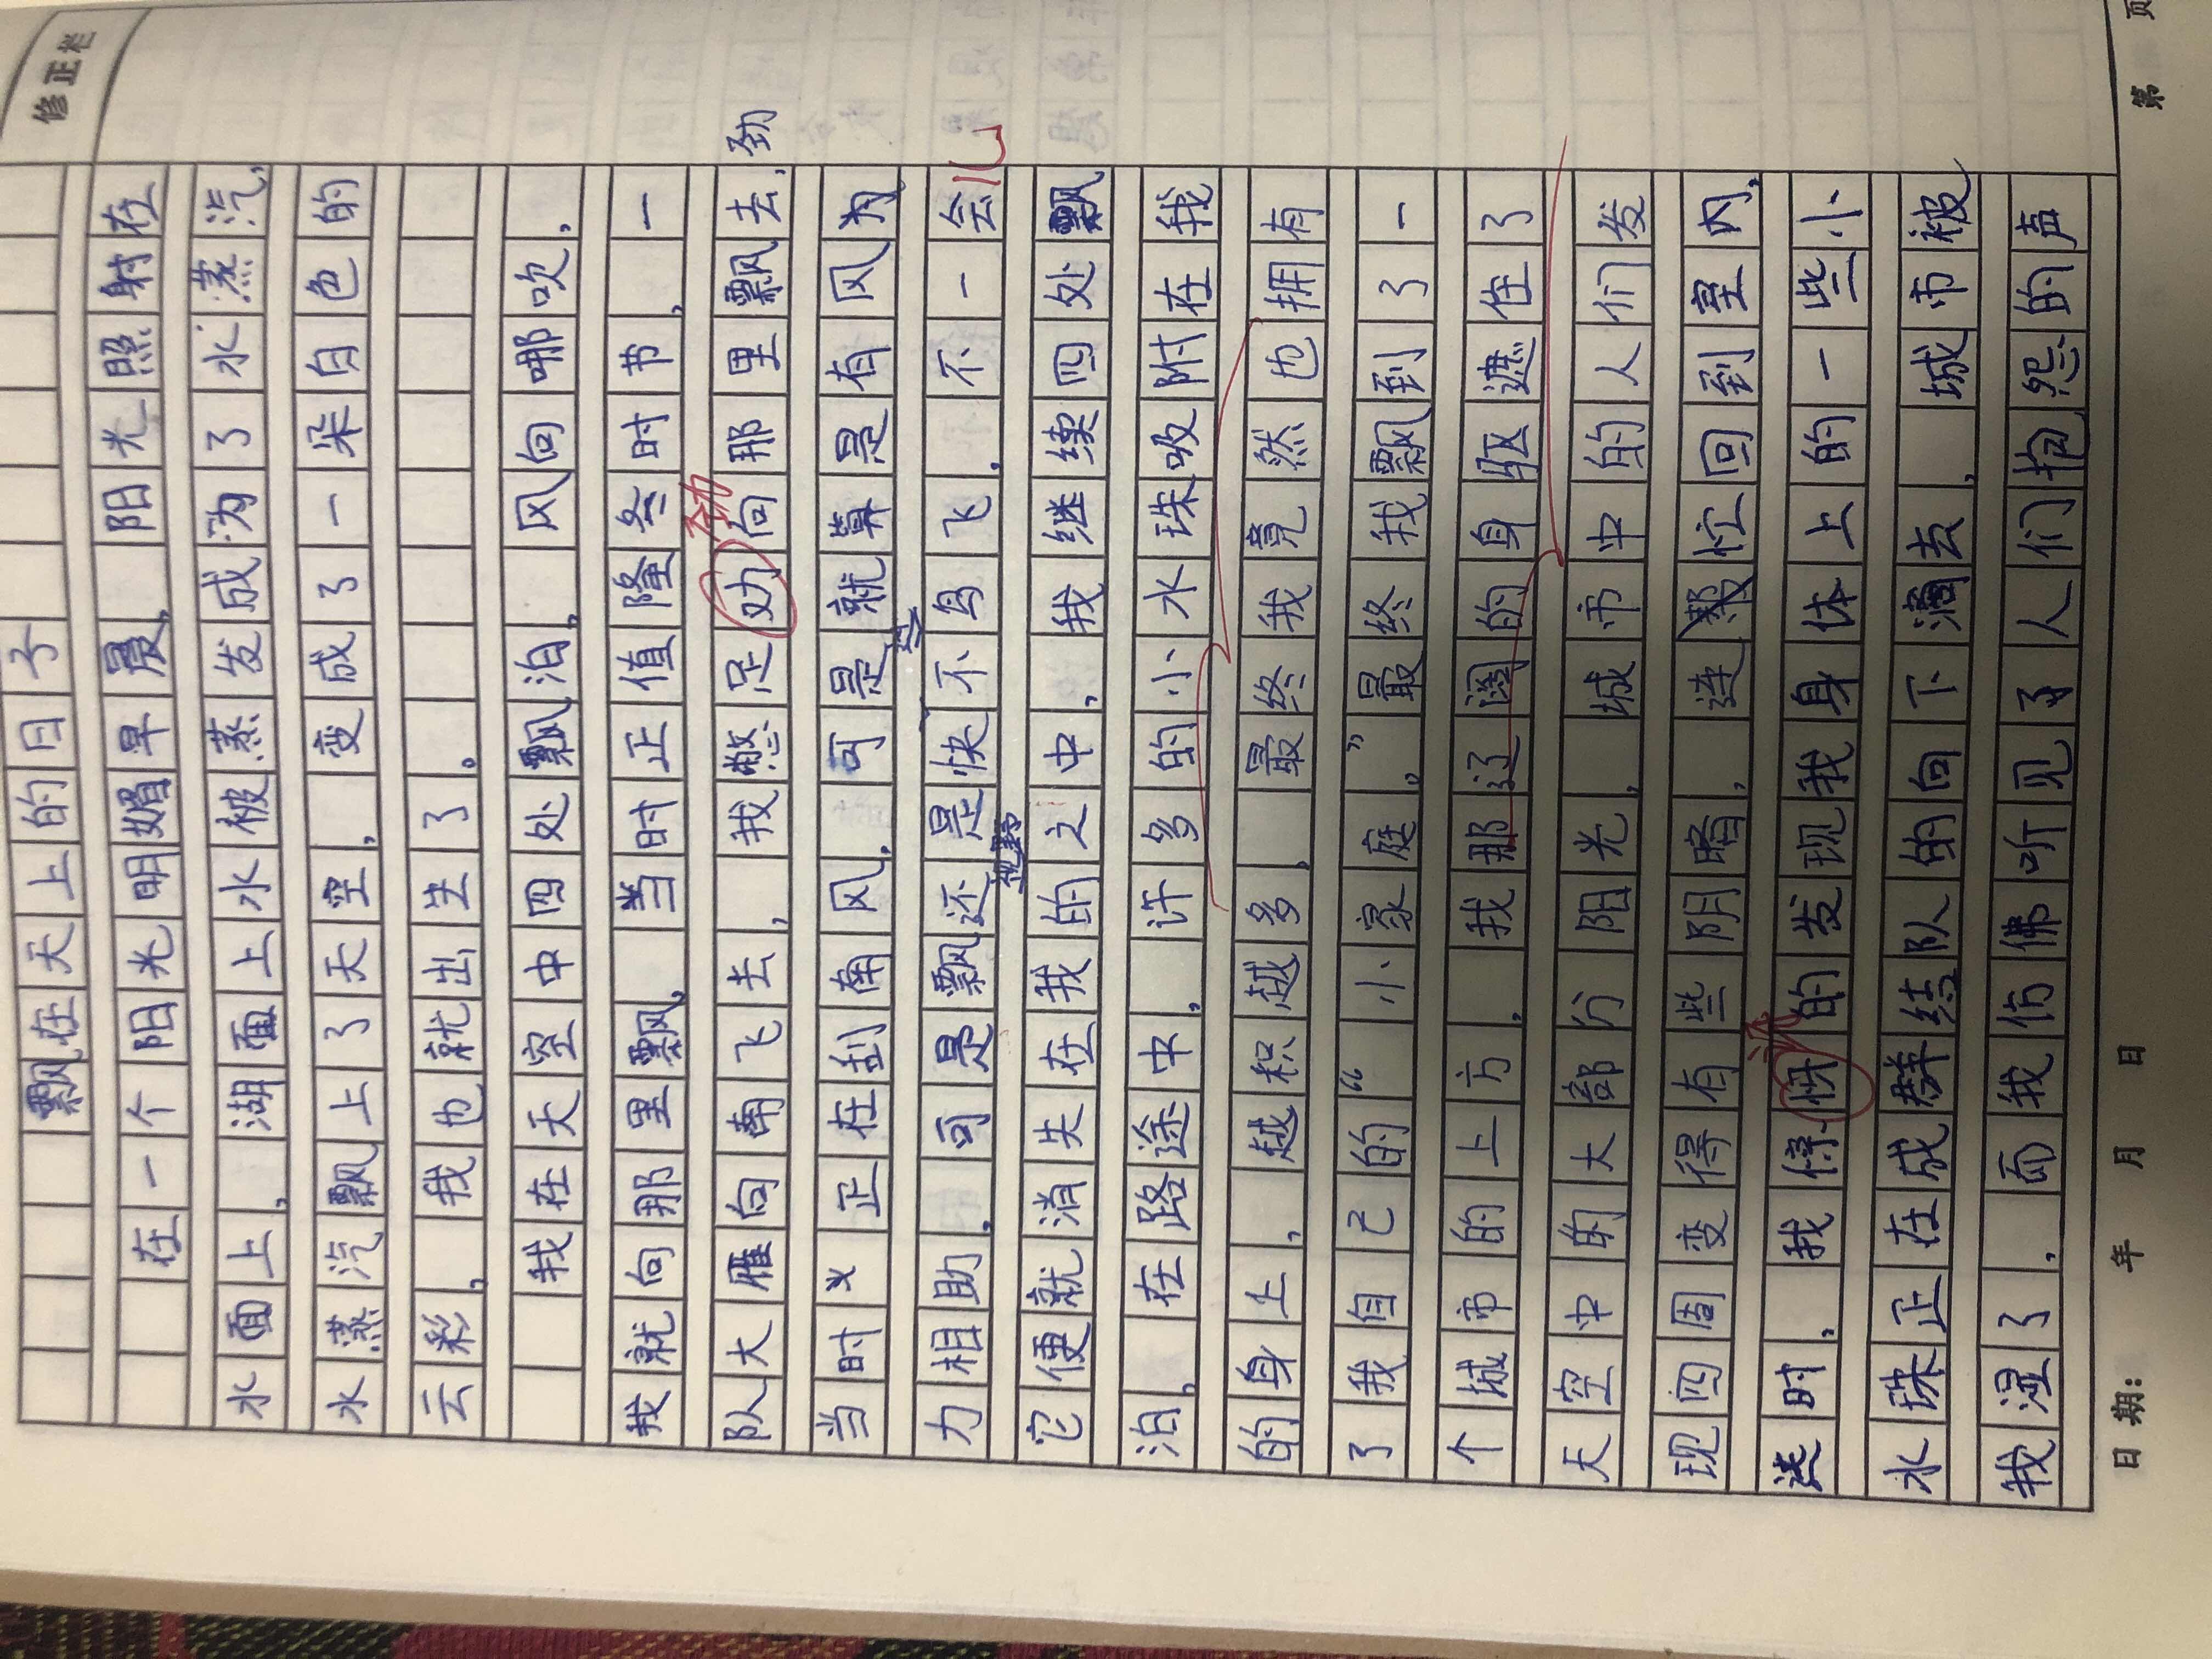 修正栏
飘在天上的日子
在一个阳光明媚早晨,阳光照射在
水面上,湖面上水被蒸发成为了水蒸汽,
水蒸汽飘上了天空,变成了一朵白色的
云彩,我也就出生了。
我在天空中四处飘泊,风向哪吹,
我就向那里飘,当时正值隆冬时节,一
队大雁向南飞去,我憋足劲向那里飘去,劲
劲
当时义正在刮南风,可是就算是有风为
力相助,可是飘还是快不鸟飞,不一会儿
视野
它便就消失在我的之中,我继续四处飘
泊,在路途中,许多的小水珠吸附在我
的身上,越积越多,最终我竟然也拥有
了我自己的“小家庭。”最终我飘到了一
个城市的上方,我那辽阔的身躯遮住了
天空中的大部分阳光,城市中的人们发
现四周变得有些阴暗,连忙回到室内,
这时,我惊讶的发现我身体上的一些小
水珠正在成群结队的向下滴去,城市被
我湿了,而我仿佛听见了人们抱怨的声
日期: 年 月 日 第 页